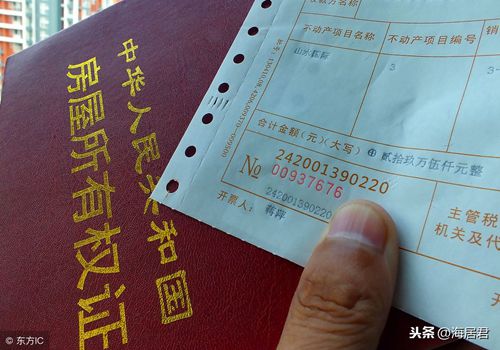 中华人民共和国
房屋所有权证
收款方名称
不动产项目名称
不动产项目编号
销
山水栋际
3
合计金额(元)(大写)
⊕ 贰拾玖万伍仟元整
242001390220
№ 00937676
242001390220
开票人:
蒋萍
主管税
机关及代
开
© 东方IC
头条@海居君